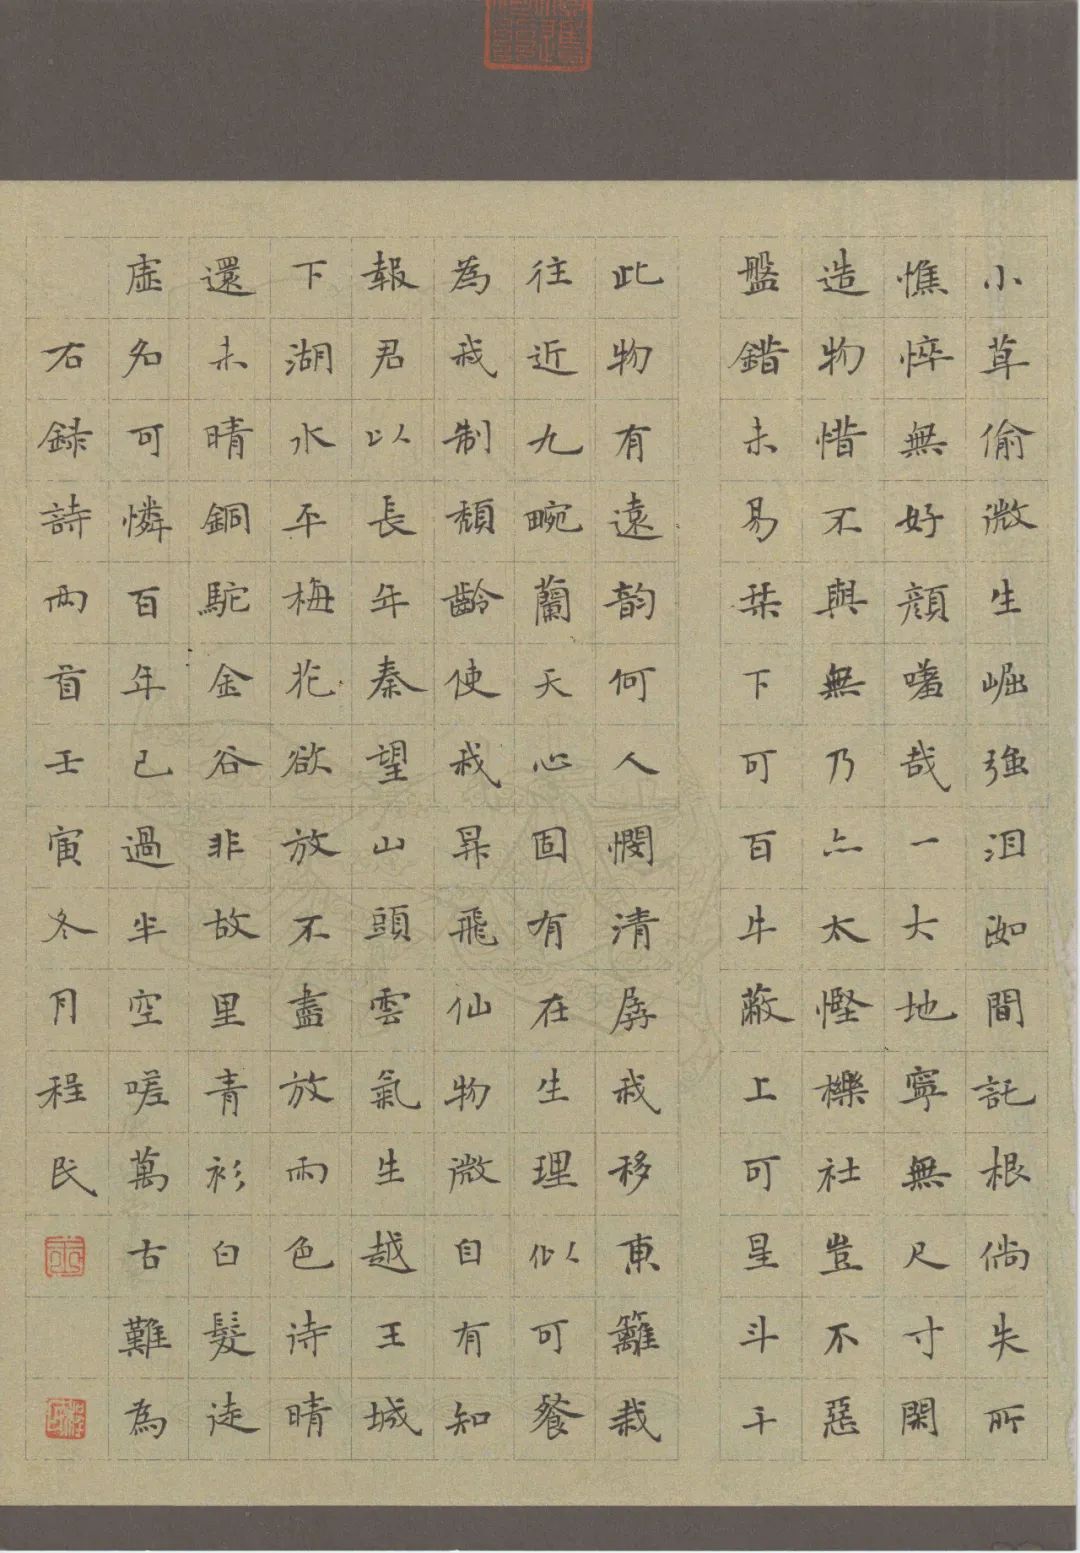 小草偷微生崛強沮洳間託根倘失所
憔悴無好顔嗟哉一大地寧無尺寸閑
造物惜不與無乃亦太慳櫟社豈不惡
盤錯未易栞下可百牛蔽上可星斗干
此物有遠韵何人憫清孱我移東籬栽
往近九畹蘭天心固有在生理似可餐
為我制頹齡使我昇飛仙物微自有知
報君以長年秦望山頭雲氣生越王城
下湖水平梅花欲放不盡放雨色诗晴
還未晴銅駝金谷非故里青衫白髮徒
虛名可憐百年已過半空嗟萬古難為
右録詩兩首壬寅冬月程民